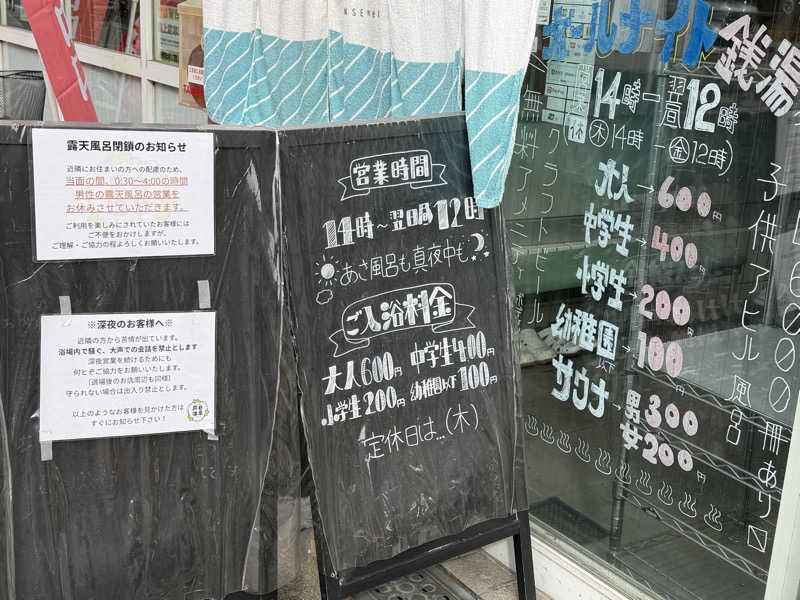 露天風呂閉鎖のお知らせ
近隣にお住まいの方への配慮のため、
当面の間、0:30～4:00の時間
男性の露天風呂の営業を
お休みさせていただきます。
ご利用を楽しみにされていたお客様には
ご不便をおかけしますが、
ご理解・ご協力の程よろしくお願いします。
※深夜のお客様へ※
近隣の方から苦情が出ています。
浴場内で騒ぐ、大声での会話を禁止とします
深夜営業を続けるためにも
何とぞご協力をお願いいたします。
(退場後のお店周辺も同様)
守られない場合は出入り禁止とします。
以上のようなお客様を見かけた方は
すぐにお知らせ下さい！
営業時間
14時～翌日朝12時
あさ風呂も真夜中も
ご入浴料金
大人600円 中学生400円
小学生200円 幼稚園以下100円
定休日は...(木)
オールナイト
銭湯
14時―翌日12時
木14時―金12時)
大人→600円
中学生→400円
小学生→200円
幼稚園以下→100円
サウナ→男300円
女200円
子供アヒル風呂